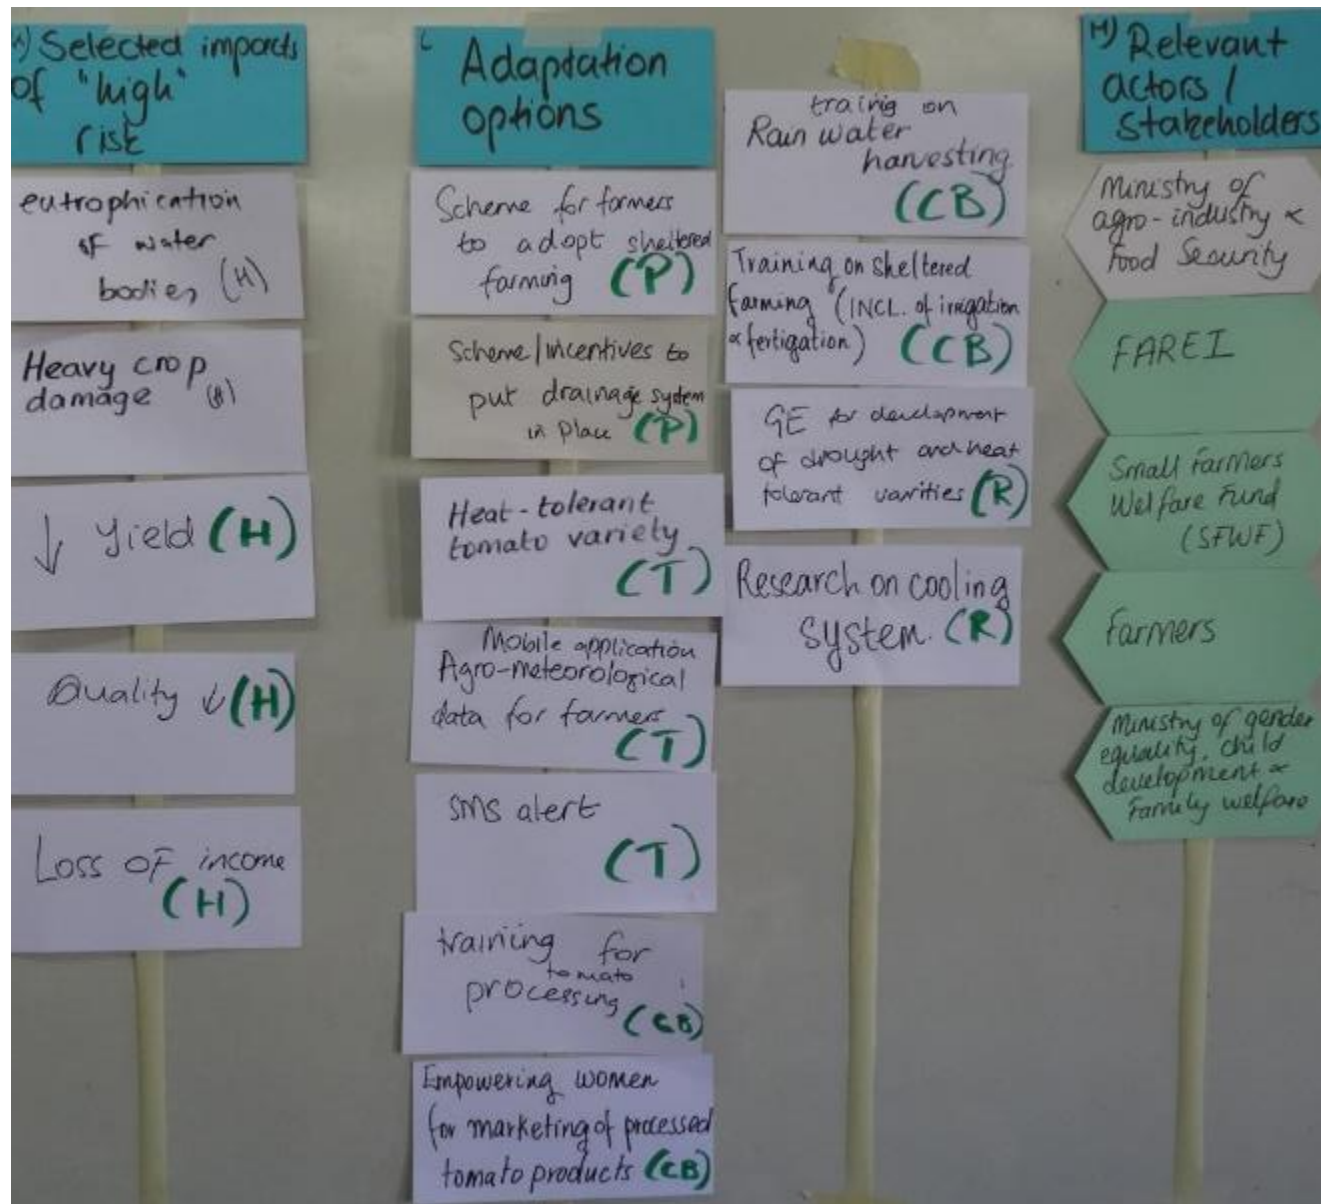 K) Selected impacts
of "high"
risk
eutrophication
of water
bodies (H)
Heavy crop
damage (H)
↓ Yield (H)
Quality ↓ (H)
Loss of income
(H)
L
Adaptation
options
Scheme for farmers
to adopt sheltered
farming (P)
Scheme/incentives to
put drainage system
in place (P)
Heat-tolerant
tomato variety
(T)
Mobile application
Agro-meteorological
data for farmers
(T)
SMS alert
(T)
training for
tomato
processing
(CB)
Empowering women
for marketing of processed
tomato products (CB)
training on
Rain water
harvesting
(CB)
Training on sheltered
farming (INCL. of irrigation
& fertigation) (CB)
GE for development
of drought and heat
tolerant varities (R)
Research on cooling
system. (R)
M) Relevant
actors /
stakeholders
Ministry of
agro-industry &
Food Security
FAREI
Small Farmers
Welfare Fund
(SFWF)
farmers
Ministry of gender
equality, child
development &
Family welfare